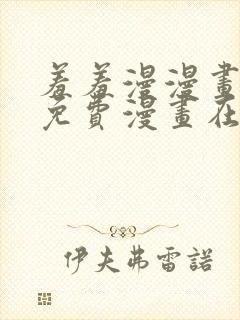 羞羞漫漫畫
免費漫畫在
伊夫弗雷諾